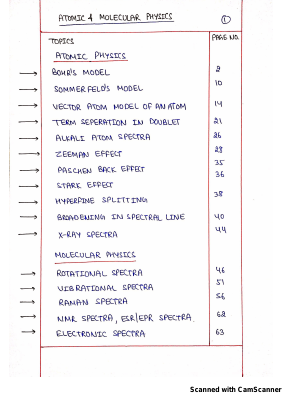 ATOMIC & MOLECULAR PHYSICS 1
TOPICS PAGE NO.
ATOMIC PHYSICS
BOHR'S MODEL 2
SOMMERFELD'S MODEL 10
VECTOR ATOM MODEL OF AN ATOM 14
TERM SEPERATION IN DOUBLET 21
ALKALI ATOM SPECTRA 26
ZEEMAN EFFECT 28
PASCHEN BACK EFFECT 35
STARK EFFECT 36
HYPERFINE SPLITTING 38
BROADENING IN SPECTRAL LINE 40
X-RAY SPECTRA 44
MOLECULAR PHYSICS
ROTATIONAL SPECTRA 46
VIBRATIONAL SPECTRA 51
RAMAN SPECTRA 56
NMR SPECTRA, ESR/EPR SPECTRA 62
ELECTRONIC SPECTRA 63
Scanned with CamScanner